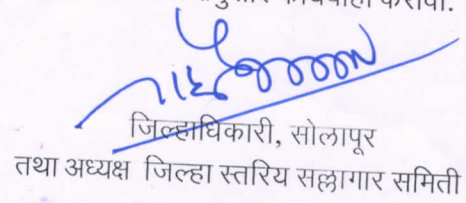 कार्यवाही करावी.
जिल्हाधिकारी, सोलापूर
तथा अध्यक्ष जिल्हा स्तरिय सल्लागार समिती